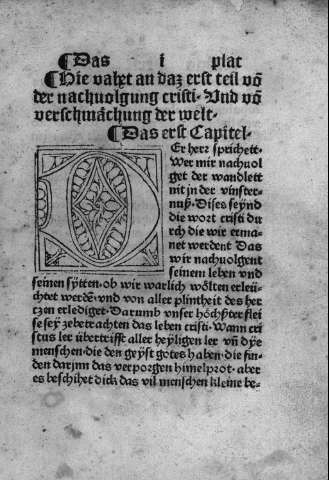 ¶Das i plat
¶Hie vahet an daz erst teil võ
der nachuolgung cristi· Vnd võ
verschmächung der welt·
¶Das erst Capitel·
DEr herr sprichett·
Wer mir nachuol
get der wandlett
nit in der vinster-
nuß· Dises seynd
die wort cristi du
rch die wir erma-
net werdent Das
wir nachuolgent
seinem leben vnd
seinen sytten· ob wir warlich wŏlten erleü-
chtet werdē· vnd von aller plintheit des her
tzen erlediget· Darumb vnser hŏchster flei
se sey zebetrachten das leben cristi· Wann cri
stus ler übertrifft aller heyligen ler vn̄ dye
menschen· die den geyst gotes haben· die fin-
den darjnn das verporgen himelprot· aber
es beschihet dick das vil menschen kleine be-